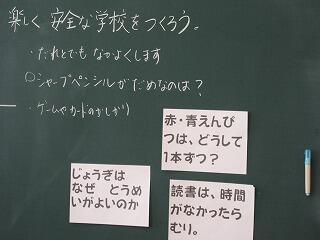 楽しく 安全な学校をつくろう。
・だれとでも なかよくします
○シャープペンシルがだめなのは？
・ゲームやカードのかしかり
赤・青えんぴ
つは、どうして
1本ずつ？
じょうぎは
なぜ とうめ
いがよいのか
読書は、時間
がなかったら
むり。